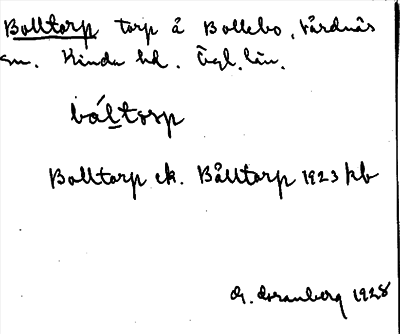 Bolltorp torp å Bollebo, Vårdnäs
sn. Kinda hd. Ögl. län.
båltorp
Bolltorp ek. Bålltorp 1923 kb
G. Franzén 1928